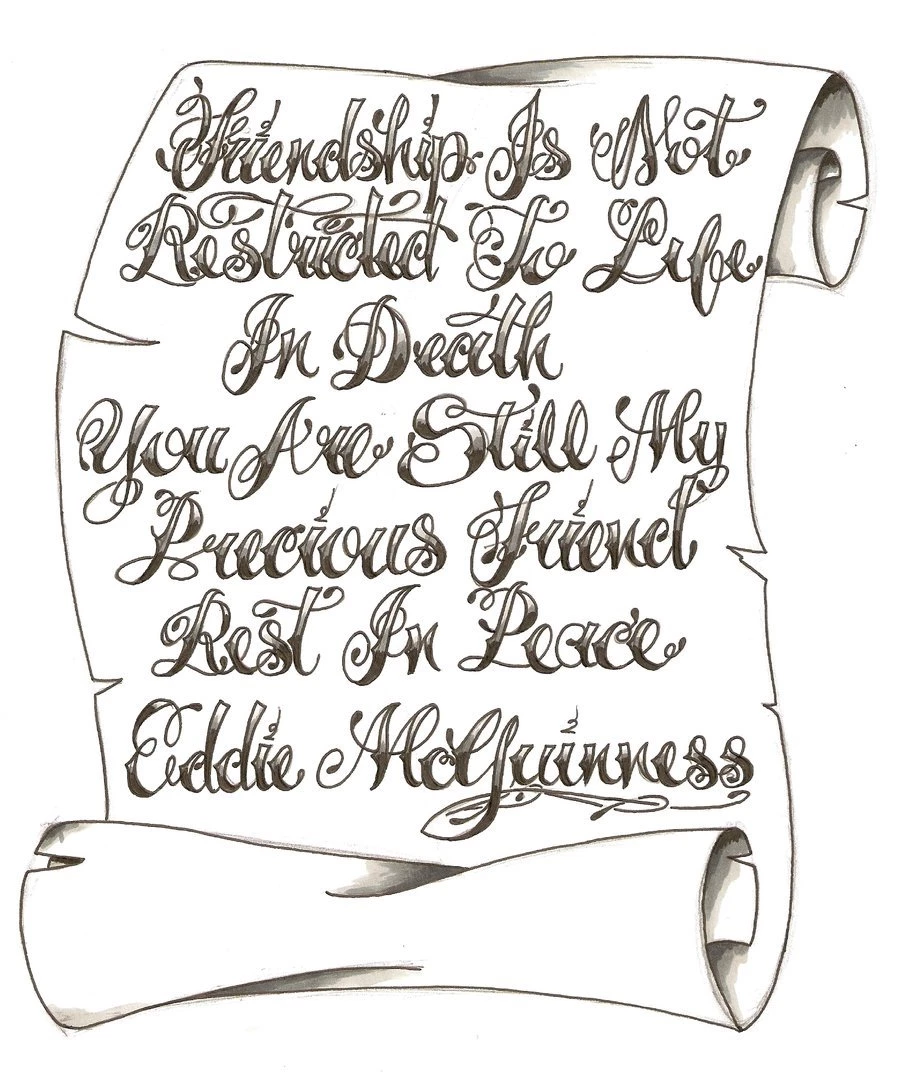 Friendship Is Not
Restricted To Life
In Death
You Are Still My
Precious Friend
Rest In Peace
Eddie McGuinness